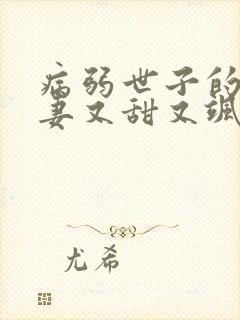 病弱世子的
妻又甜又飒
尤希